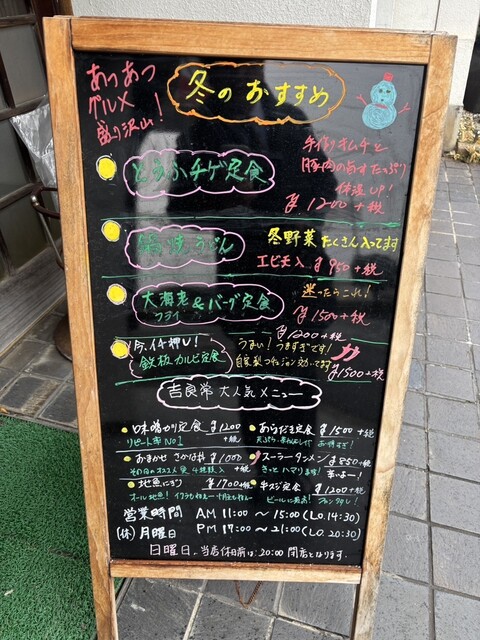 あつあつ
グルメ
盛り沢山!
冬のおすすめ
手作りキムチと
豚肉のあすたっぷり
体温UP!
とうふチゲ定食
¥1200+税
鍋焼うどん
冬野菜たくさん入ってます
エビ天入 ¥950+税
大海老&バーグ定食
フライ
迷ったらこれ!
¥1500+税
今、イチ押し!
鉄板カルビ定食
¥1200+税
うまい!うますぎです!
自家製コチュジャン効いてます
¥1500+税
吉良常 大人気メニュー
味噌かつ定食 ¥1200
+税
リピート率No1
あらだき定食 ¥1500+税
おまかせ さかな丼 ¥1000
+税
その日のオススメ 4種類入
スーラータンメン ¥850+税
きっと ハマります! 辛いよー!
地魚にぎり ¥1700+税
牛スジ定食 ¥1200+税
ビールに最高!
営業時間 AM 11:00 ~ 15:00 (L.O.14:30)
(休)月曜日 PM 17:00 ~ 21:00 (L.O.20:30)
日曜日、当店休日前は20:00 閉店となります.